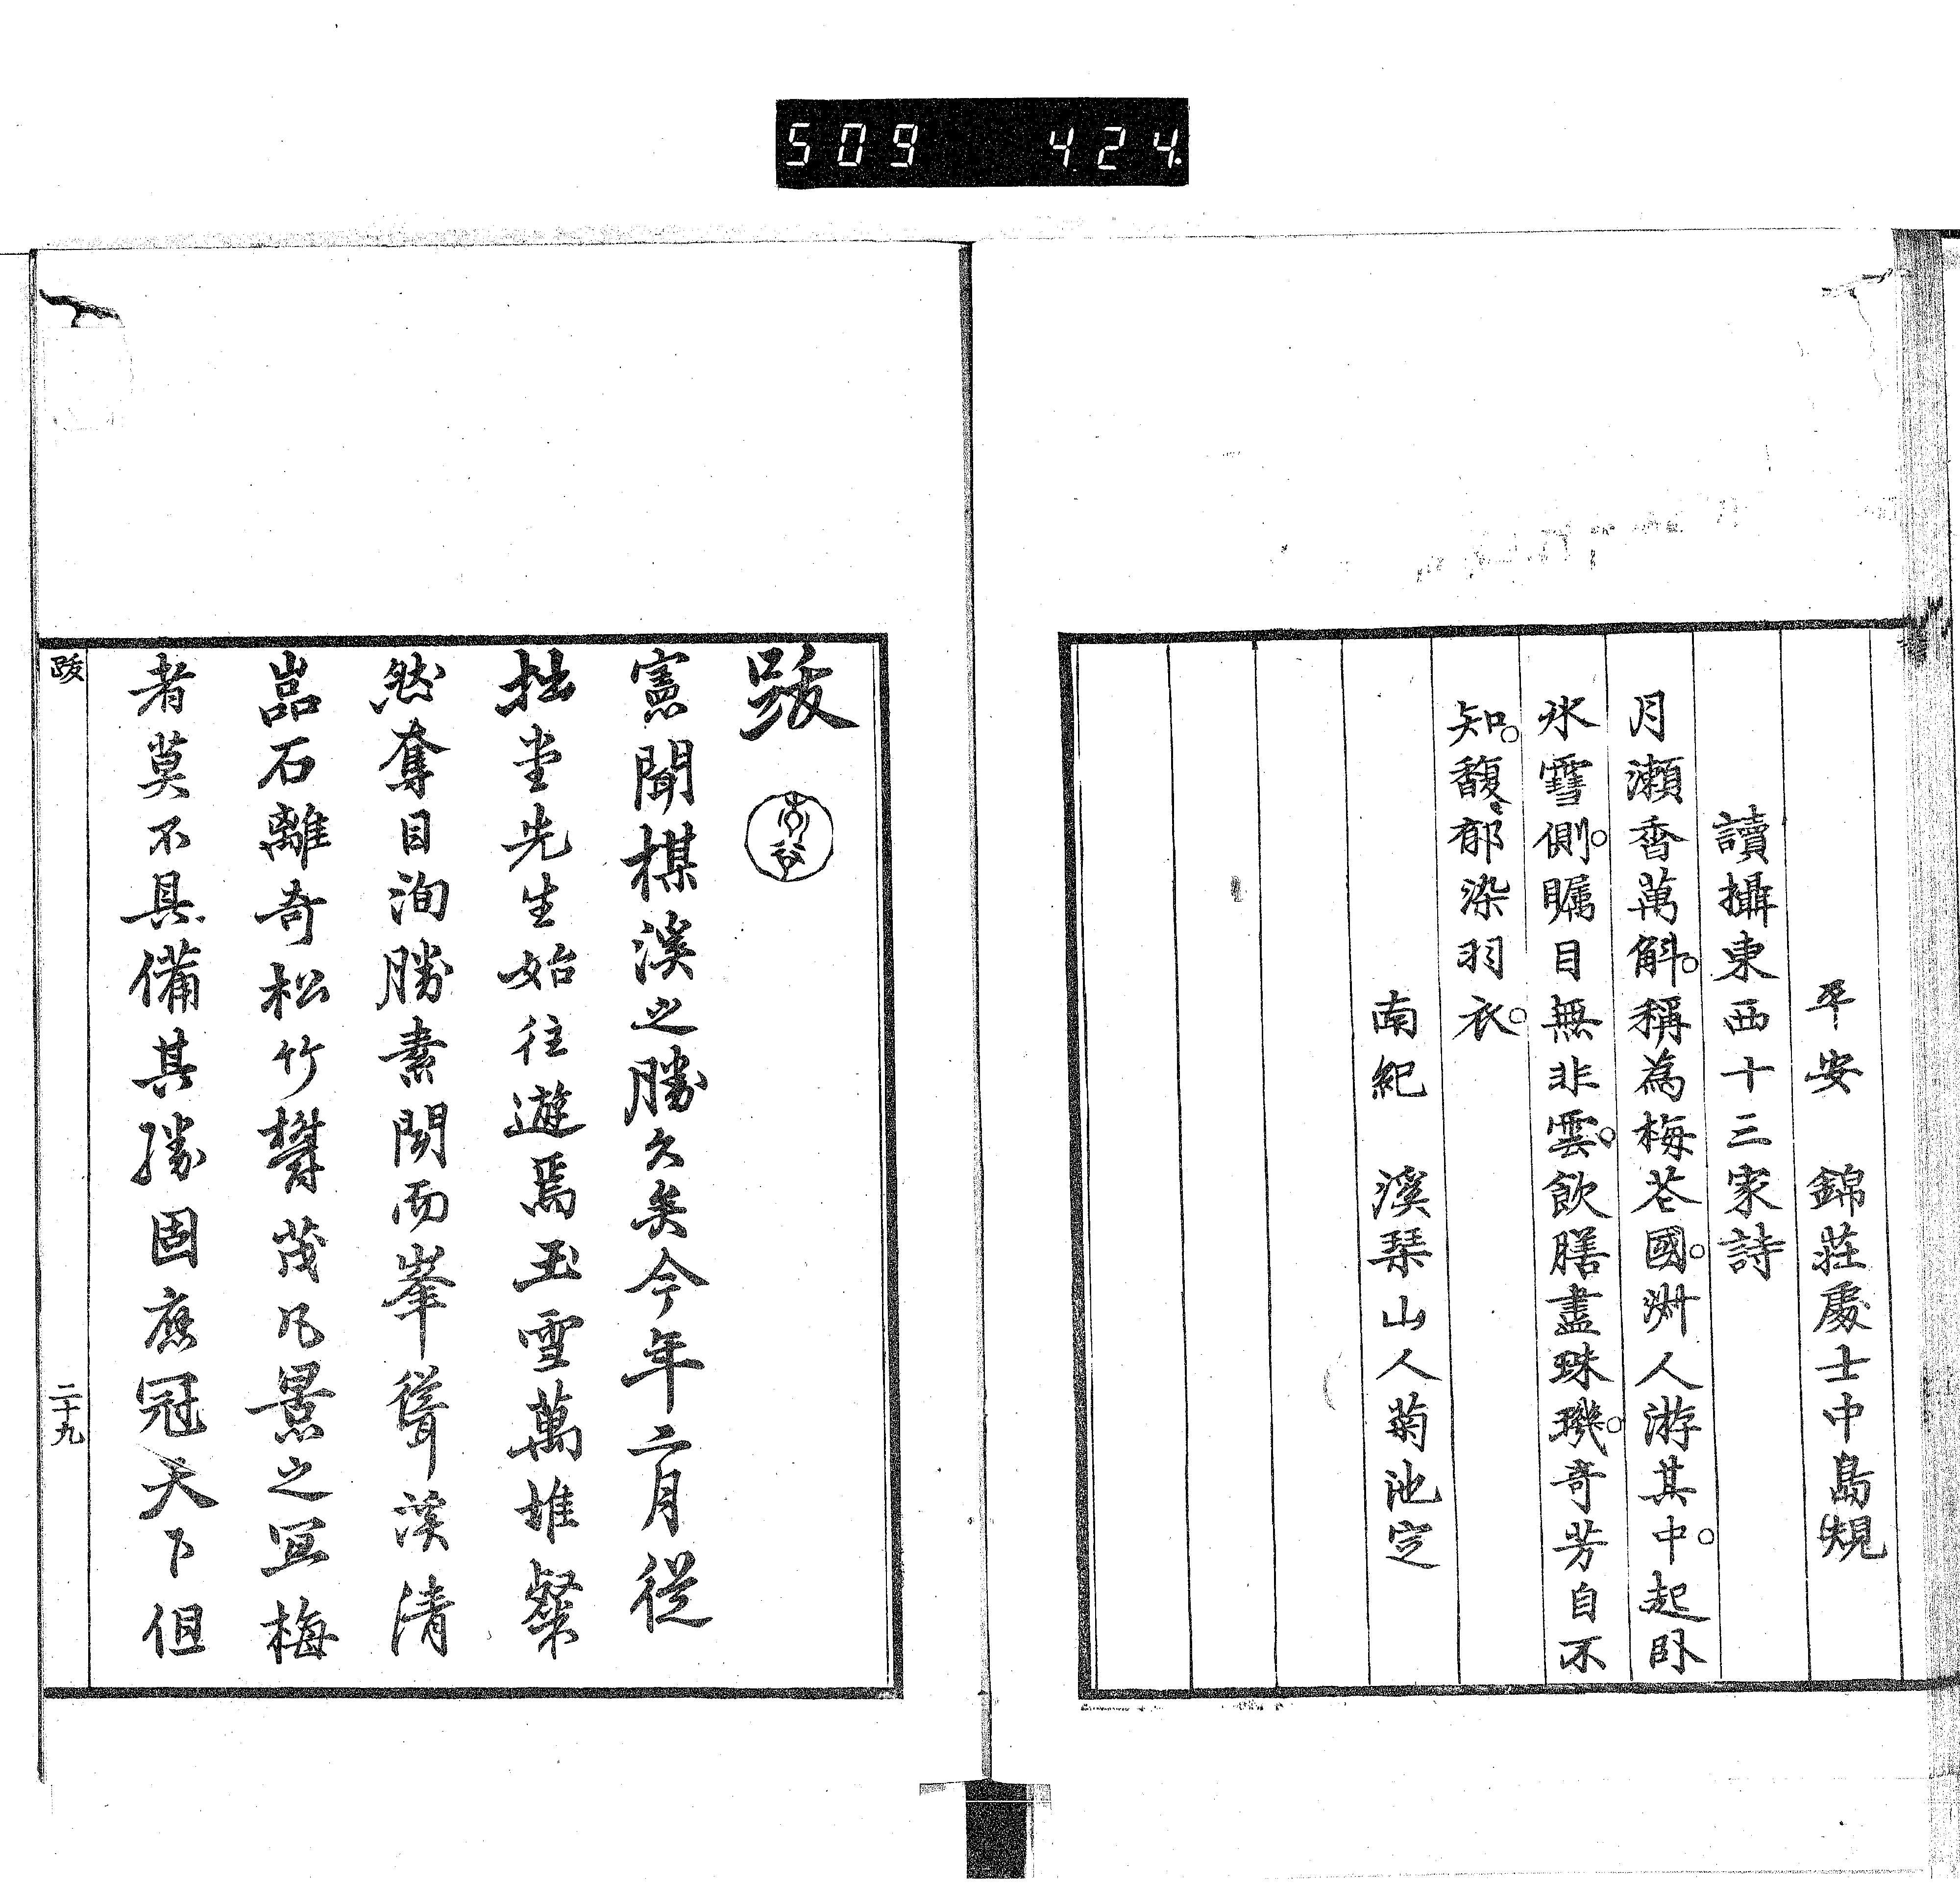 509 424.
平安 錦莊處士中島規
讀攝東西十三家詩
月瀬香萬斛稱為梅花國洲人游其中起卧
氷雪側矚目無非雲飲膳盡珠璣奇芳自不
知馥〻郁染羽衣
南紀 溪琴山人菊池定
跋
憲聞楳溪之勝久矣今年二月從
拙堂先生始往遊焉玉雪萬堆粲
然奪目洵勝素聞而峯聳溪清
嵓石離奇松竹欝茂凡景之宜梅
者莫不具備其勝固應冠天下但
跋
二十九